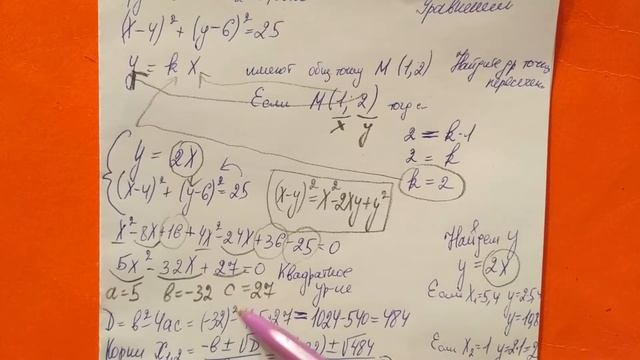 Уравнением
(x-4)² + (y-6)² = 25
y = k x имеют общ точку M (1,2) Найдите др точку
пересечен
Если M(1, 2) тогда
x y
2 = k·1
2 = k
k = 2
y = 2x
(x-4)² + (y-6)² = 25
(x-y)² = x² - 2xy + y²
x² - 8x + 16 + 4x² - 24x + 36 - 25 = 0
5x² - 32x + 27 = 0 Квадратное
ур-ие
a = 5 b = -32 c = 27
D = b² - 4ac = (-32)² 5·27 = 1024 - 540 = 484
Корни x₁,₂ = -b ± √D ± √484
Найдем y
y = 2x
Если x₁ = 5,4 y = 2·5,4
y = 10,8
Если x₂ = 1 y = 2·1 = 2